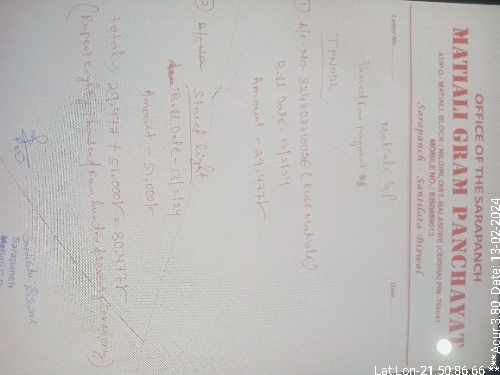 OFFICE OF THE SARAPANCH
MATIALI GRAM PANCHAYAT
AT/PO - MATIALI, BLOCK : NILGIRI, DIST-BALASORE (ODISHA) PIN -756041
MOBILE NO.: 8260869013
Sarapanch : Santilata Biswal
Letter No. Date:
Matiali G.P
Passed for payment
TPNODL
① A/c No- 324303310036 (
Bill Date - 13/2/24
Amount - 29,477/-
② A/c No Street light
Bill Date - 13/2/24
Amount - 51,000/-
total = 29,477 + 51,000/- = 80,477/-
(Rupees Eighty thousand four hundred seventy seven only)
PEO
Santilata Biswal
Sarapanch
Matiali G.P
Lat.Lon-21.50:86.66
***Acur:3.80. Date. 13-02-2024